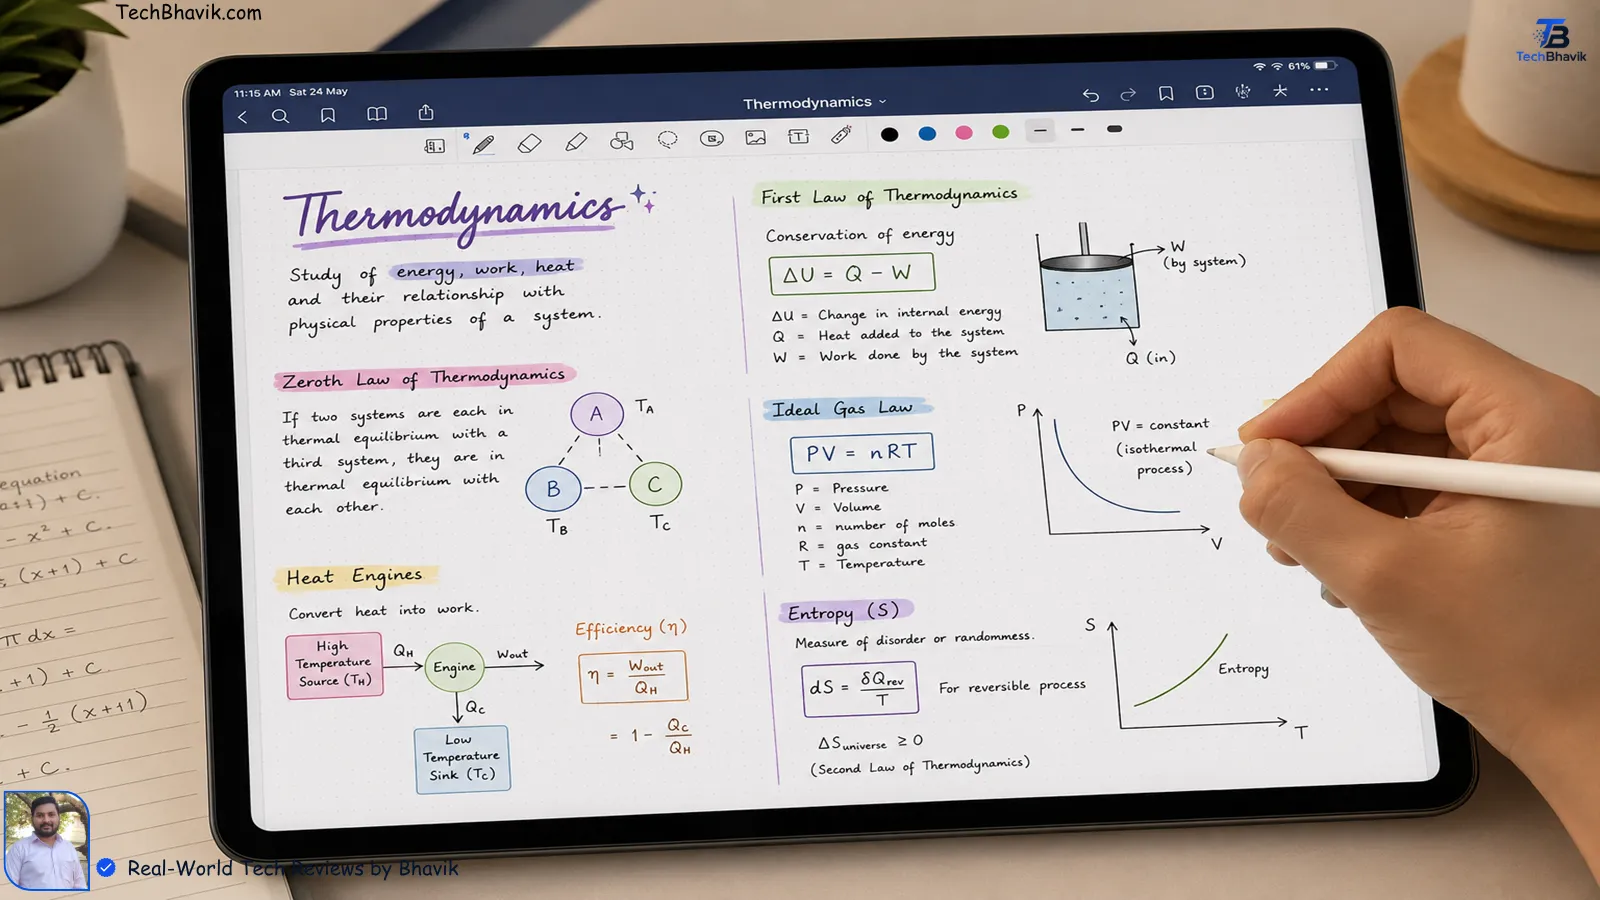 TechBhavik.com
TB
TechBhavik
11:15 AM Sat 24 May
61%
Thermodynamics
Thermodynamics
Study of energy, work, heat
and their relationship with
physical properties of a system.
Zeroth Law of Thermodynamics
If two systems are each in
thermal equilibrium with a
third system, they are in
thermal equilibrium with
each other.
A
T_A
B
C
T_B
T_C
Heat Engines
Convert heat into work.
High
Temperature
Source (T_H)
Q_H
Engine
W_out
Q_C
Low
Temperature
Sink (T_C)
Efficiency (η)
η = W_out / Q_H
= 1 - Q_C / Q_H
First Law of Thermodynamics
Conservation of energy
ΔU = Q - W
ΔU = Change in internal energy
Q = Heat added to the system
W = Work done by the system
W
(by system)
Q (in)
Ideal Gas Law
PV = nRT
P = Pressure
V = Volume
n = number of moles
R = gas constant
T = Temperature
P
PV = constant
(isothermal
process)
V
Entropy (S)
Measure of disorder or randomness.
dS = δQ_rev / T
For reversible process
ΔS_universe ≥ 0
(Second Law of Thermodynamics)
S
Entropy
T
equation
+ C.
- x² + C.
(x+1) + C
π dx =
+1) + C
- 1/2 (x+11)
+ C.
Real-World Tech Reviews by Bhavik